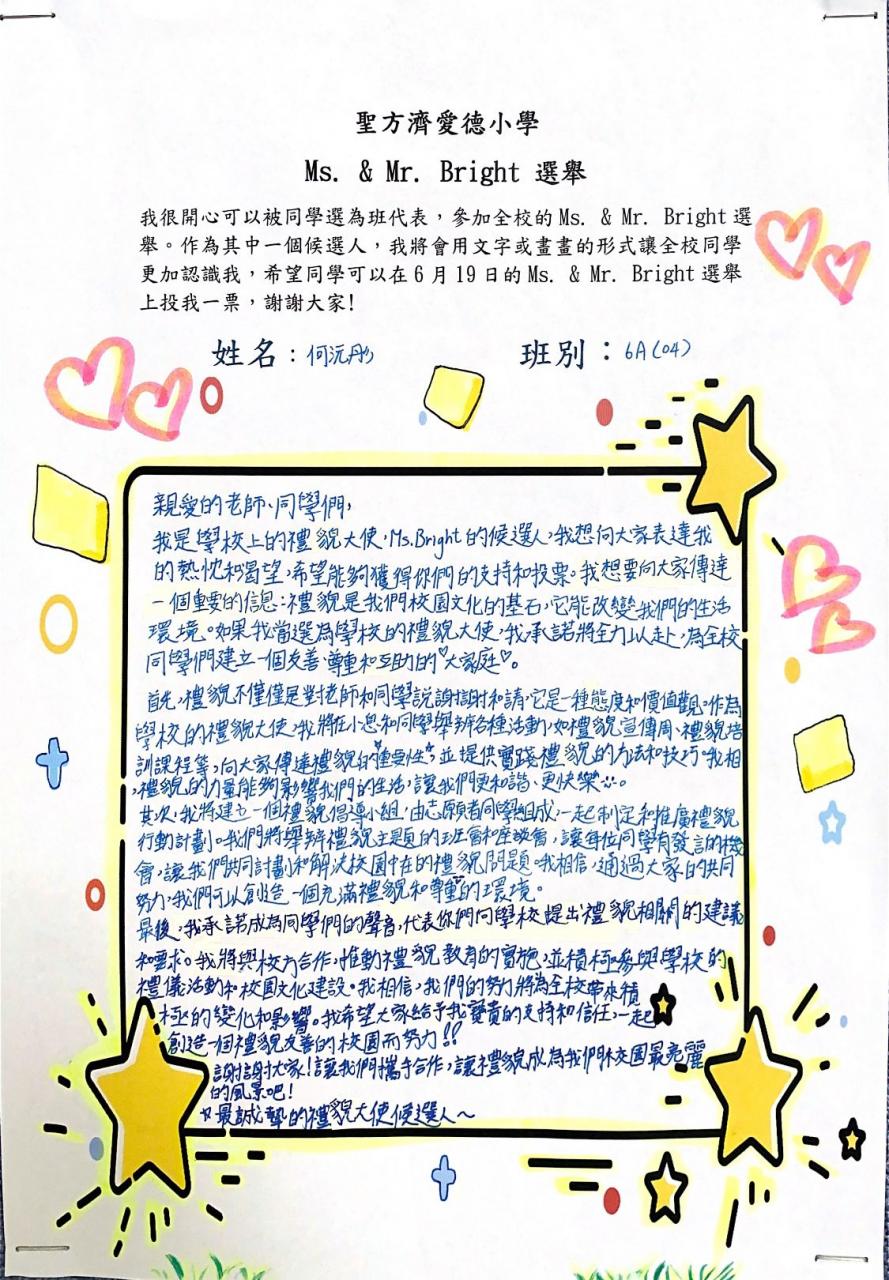 聖方濟愛德小學
Ms. & Mr. Bright 選舉
我很開心可以被同學選為班代表，參加全校的 Ms. & Mr. Bright 選
舉。作為其中一個候選人，我將會用文字或畫畫的形式讓全校同學
更加認識我，希望同學可以在 6 月 19 日的 Ms. & Mr. Bright 選舉
上投我一票，謝謝大家!
姓名：何沅彤 班別：6A(04)
親愛的老師、同學們，
我是學校上的禮貌大使，Ms.Bright的候選人，我想向大家表達我
的熱忱和渴望，希望能夠獲得你們的支持和投票。我想要向大家傳達
一個重要的信息：禮貌是我們校園文化的基石，它能改變我們的生活
環境。如果我當選為學校的禮貌大使，我承諾將全力以赴，為全校
同學們建立一個友善、尊重和互助的♡大家庭♡。
首先，禮貌不僅僅是對老師和同學說謝謝和請，它是一種態度和價值觀。作為
學校的禮貌大使，我將在小息和同學舉辦各種活動，如禮貌宣傳周、禮貌培
訓課程等，向大家傳達禮貌的"重要性"，並提供實踐禮貌的方法和技巧。我相
，禮貌的力量能夠影響我們的生活，讓我們更和諧、更快樂。
其次，我將建立一個禮貌倡導小組，由志願者同學組成，一起制定和推廣禮貌
行動計劃。我們將舉辦禮貌主題的班會和座談會，讓每位同學有發言的機
會，讓我們共同計劃和解決校園中在的禮貌問題。我相信，通過大家的共同
努力，我們可以創造一個充滿禮貌和尊重的環境。
最後，我承諾成為同學們的聲音，代表你們向學校提出禮貌相關的建議
和要求。我將與校方合作，推動禮貌教育的實施，並積極參與學校的
禮儀活動和校園文化建設。我相信，我們的努力將為全校帶來積
極的變化和影響。我希望大家給予我寶貴的支持和信任，一起
創造一個禮貌友善的校園而努力!!
謝謝大家！讓我們攜手合作，讓禮貌成為我們校園最亮麗
的風景吧！
最誠摯的禮貌大使候選人～